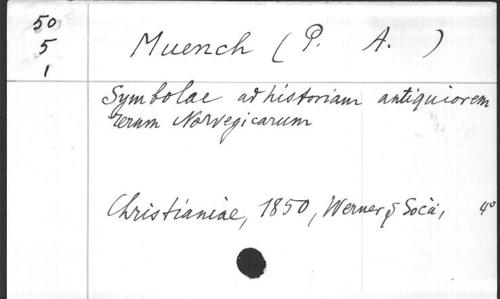 50
5
1
Muench ( P. A. )
Symbolae ad historiam antiquiorem
rerum Norvegicarum
Christianiae, 1850, Werner & Socii, 4°